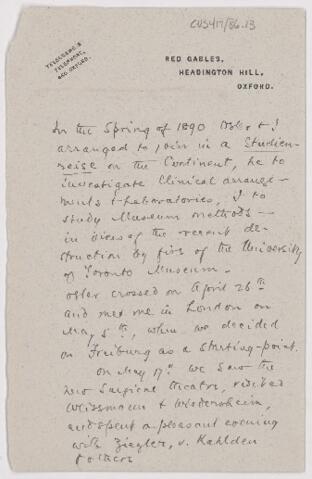 CUS417/86.13
TELEGRAMS &
TELEPHONE,
OXFORD.
RED GABLES,
HEADINGTON HILL,
OXFORD.
In the Spring of 1890 Osler & I
arranged to join in a Studien-
reise on the Continent, he to
investigate Clinical arrange-
ments & Laboratories, I to
study Museum methods —
in view of the recent de-
struction by fire of the University
of Toronto Museum.
Osler crossed on April 26th
and met me in London on
May 5th, when we decided
on Freiburg as a starting-point.
on May 17th we saw the
new Surgical theatre, visited
Weissmann & Wiedersheim,
and spent a pleasant evening
with Ziegler, v. Kahlden
& others